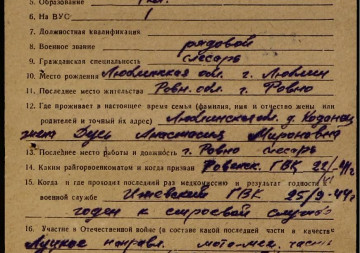 5. Образование
6. На ВУС 1
7. Должностная квалификация
8. Военное звание рядовой
9. Гражданская специальность слесарь
10. Место рождения Люблинская обл. г. Люблин
11. Последнее место жительства Ровн. обл. г. Ровно
12. Где проживает в настоящее время семья (фамилия, имя и отчество жены или
родителей и точный их адрес) Люблинская обл. д.
жена Дузь Анастасия Мироновна
13. Последнее место работы и должность г. Ровно слесарь
14. Каким райгорвоенкоматом и когда призван Ровенск. ГВК
15. Когда и где проходил последний раз медкомиссию и результат годности к
военной службе Ижевский ГВК 25/9-44г
годен к строевой службе
16. Участие в Отечественной войне (в составе какой последней части и в качестве
Луцкое направл. мото-мех. часть